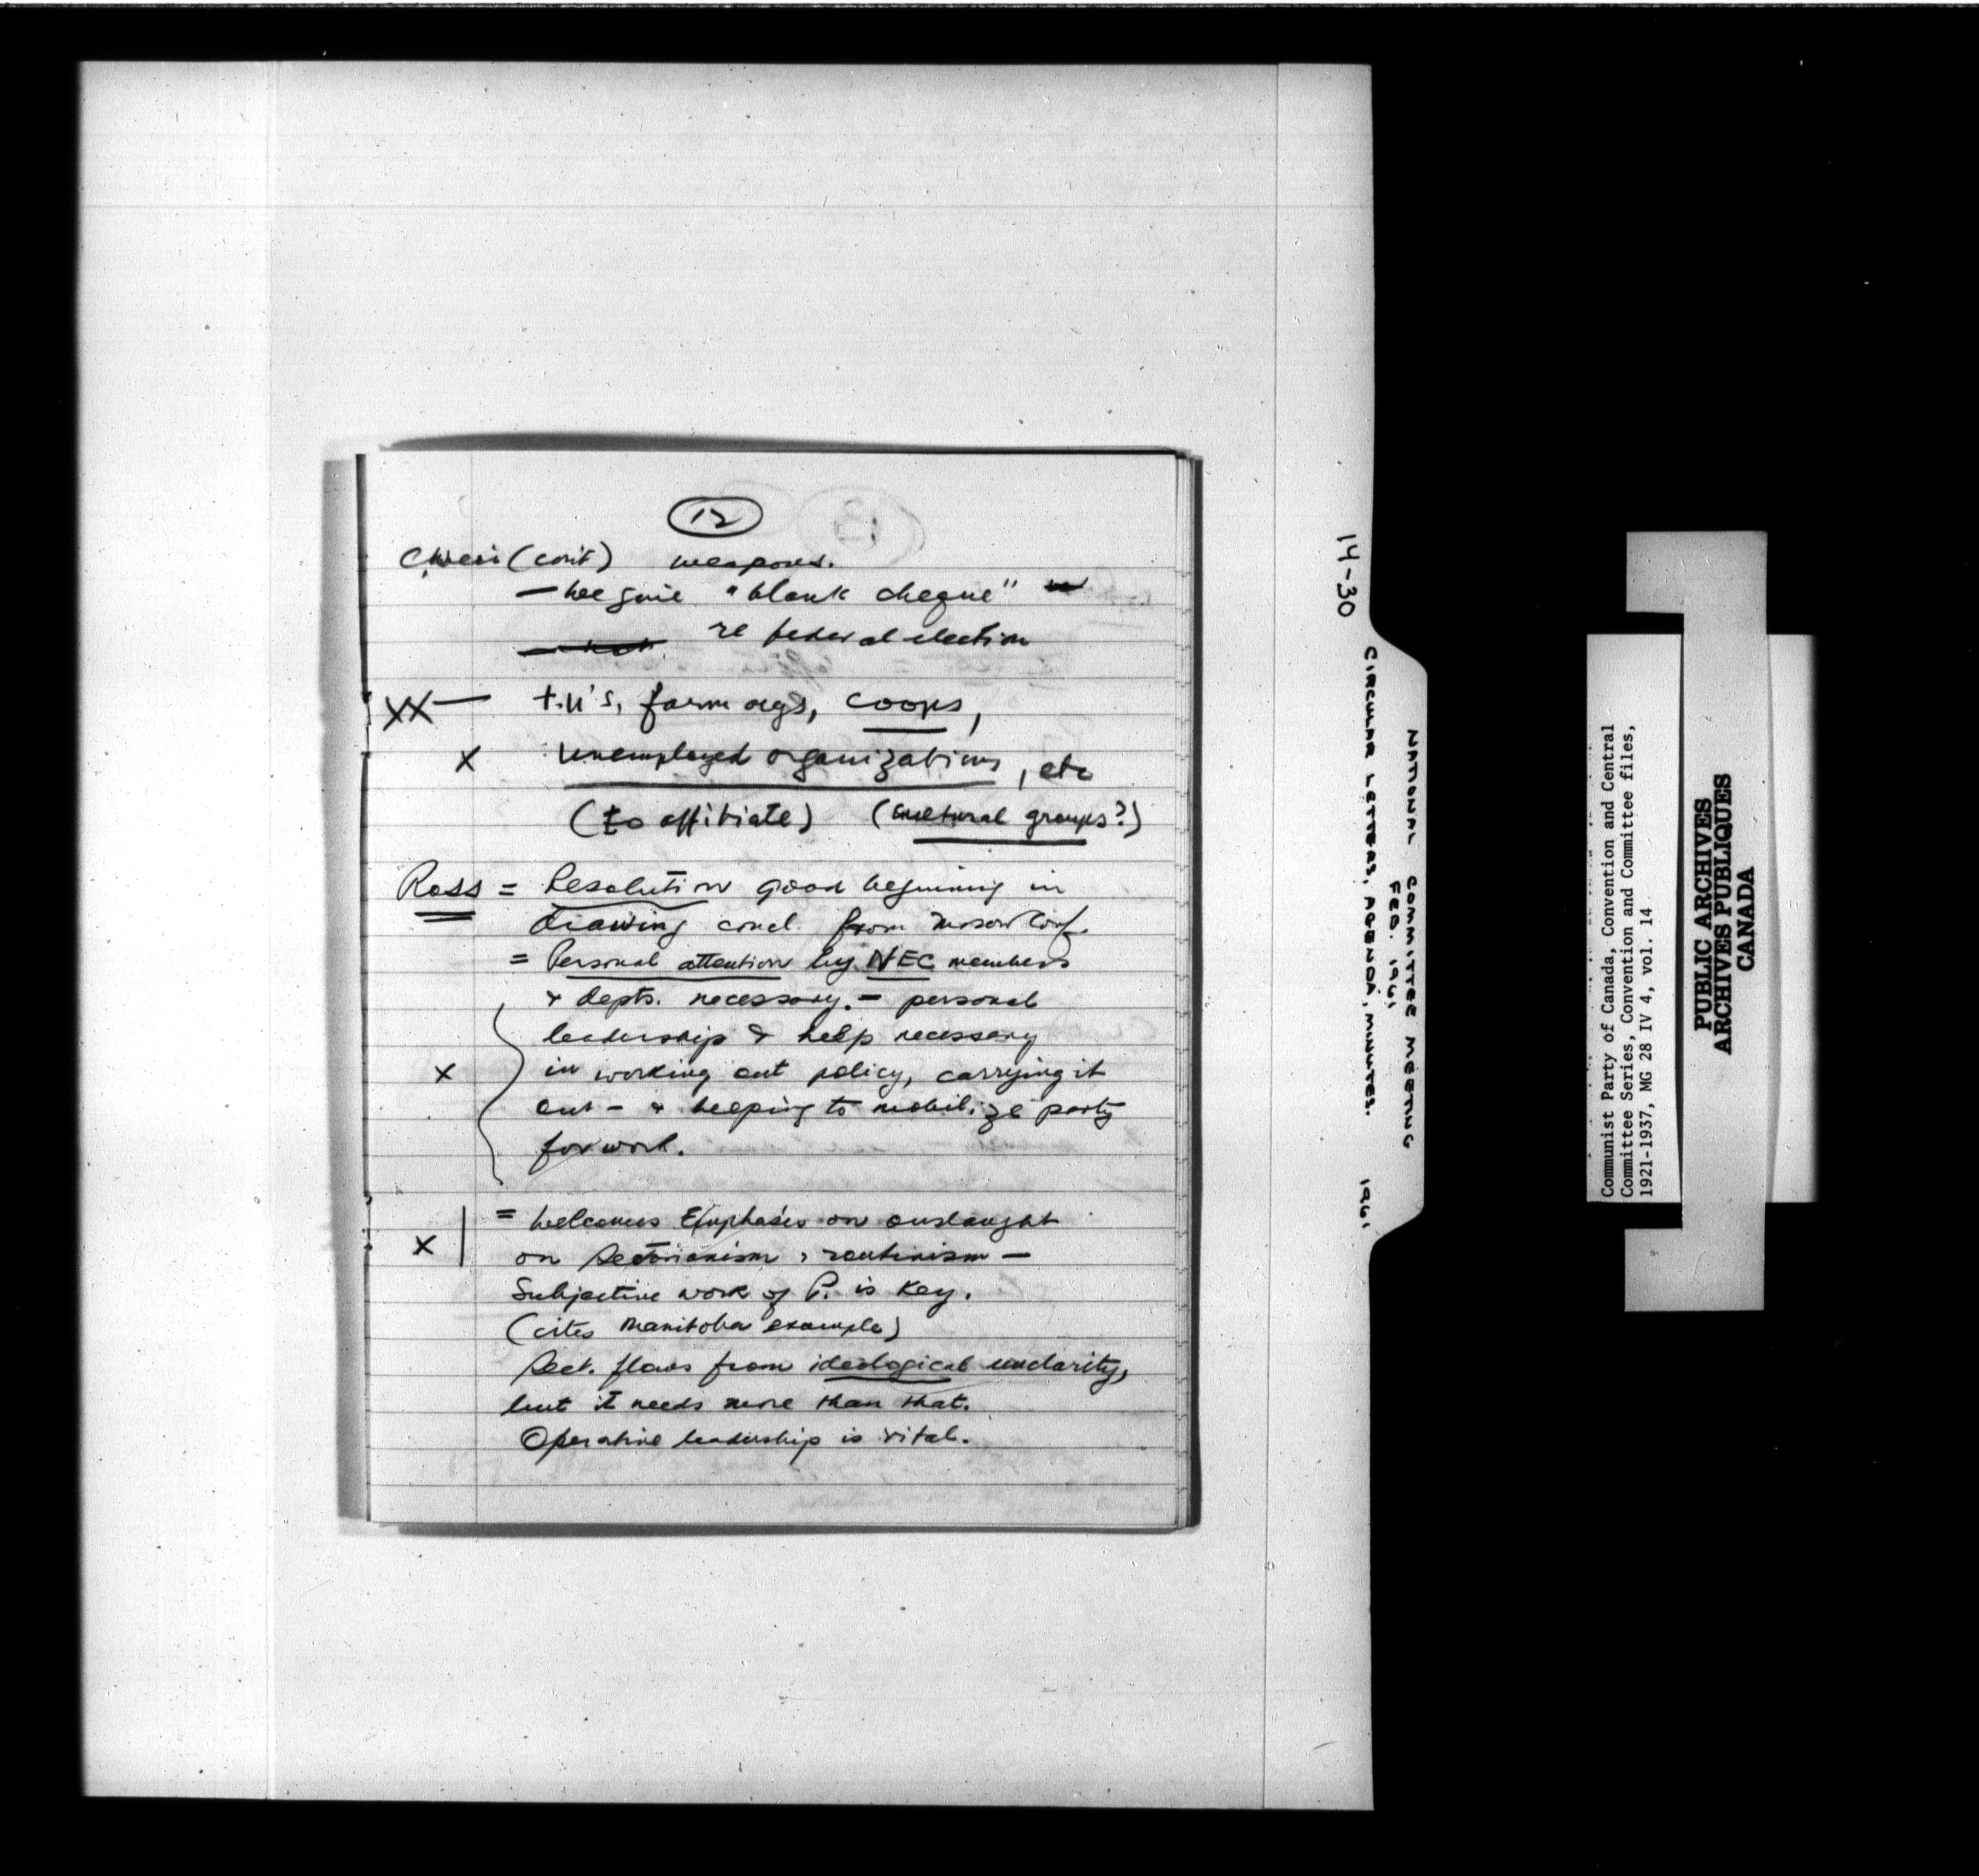 12
(con't) weapons.
— we give "blank cheque"
re federal election
XX — t.u's, farm orgs, coops,
X unemployed organizations, etc
(to affiliate) (cultural groups?)
Ross = Resolution good beginning in
drawing concl. from Moscow Conf.
= Personal attention by NEC members
& depts. necessary. — personal
leadership & help necessary
X in working out policy, carrying it
out — & helping to mobilize party
for work.
= welcomes Emphasis on onslaught
X on Sectarianism, routinism —
Subjective work of P. is key.
(cites Manitoba example)
Sect. flows from ideological unclarity,
but it needs more than that.
Operative leadership is vital.
14-30
CIRCULAR LETTERS, AGENDA, MINUTES. 1961
NATIONAL COMMITTEE MEETING
FEB. 1961,
Communist Party of Canada, Convention and Central
Committee Series, Convention and Committee files,
1921-1937, MG 28 IV 4, vol. 14
PUBLIC ARCHIVES
ARCHIVES PUBLIQUES
CANADA